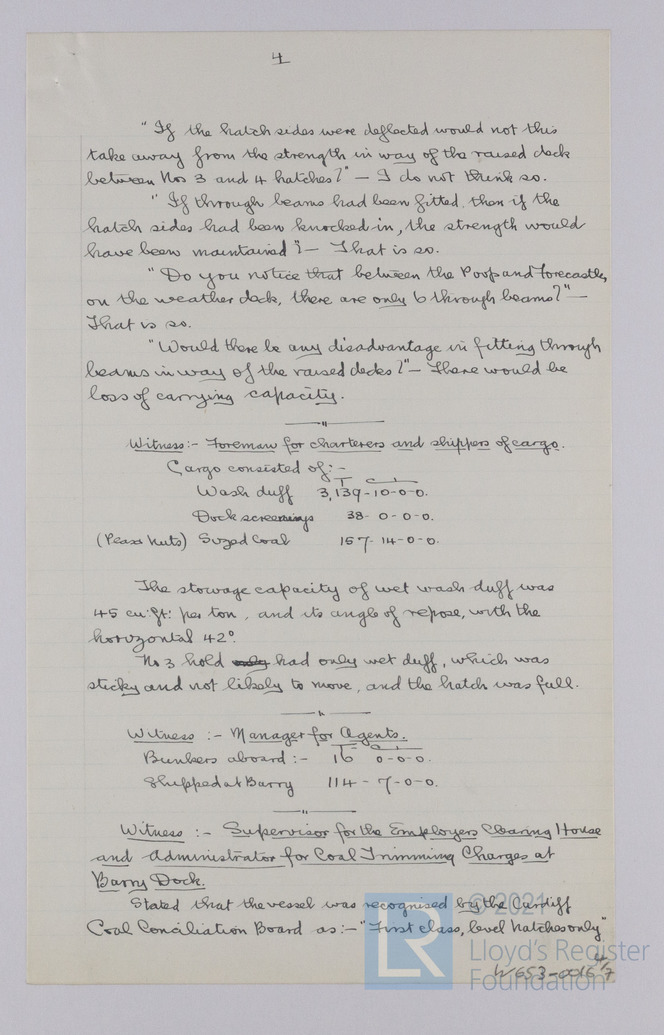 4
"If the hatch sides were deflected would not this
take away from the strength in way of the raised deck
between Nos 3 and 4 hatches?" — I do not think so.
"If through beams had been fitted, then if the
hatch sides had been knocked in, the strength would
have been maintained"?— That is so.
"Do you notice that between the Poop and Forecastle,
on the weather deck, there are only 6 through beams?"—
That is so.
"Would there be any disadvantage in fitting through
beams in way of the raised decks?"— There would be
loss of carrying capacity.
Witness:- Foreman for charterers and shippers of cargo.
Cargo consisted of:-
T C L
Wash duff 3,139-10-0-0.
Dock screenings 38- 0-0-0.
(Peas Nuts) Sized Coal 157- 14-0-0.
The stowage capacity of wet wash duff was
45 cu. ft: per ton, and its angle of repose, with the
horizontal 42°.
No 3 hold only had only wet duff, which was
sticky and not likely to move, and the hatch was full.
Witness :- Manager for Agents.
T C L
Bunkers aboard :- 16 0-0-0.
Shipped at Barry 114 - 7-0-0.
Witness :- Supervisor for the Employers Clearing House
and Administrator for Coal Trimming Charges at
Barry Dock.
Stated that the vessel was recognised by the Cardiff
Coal Conciliation Board as:- "First class, level hatches only"
© 2021
LR
Lloyd's Register
Foundation
W653-0016 4/7